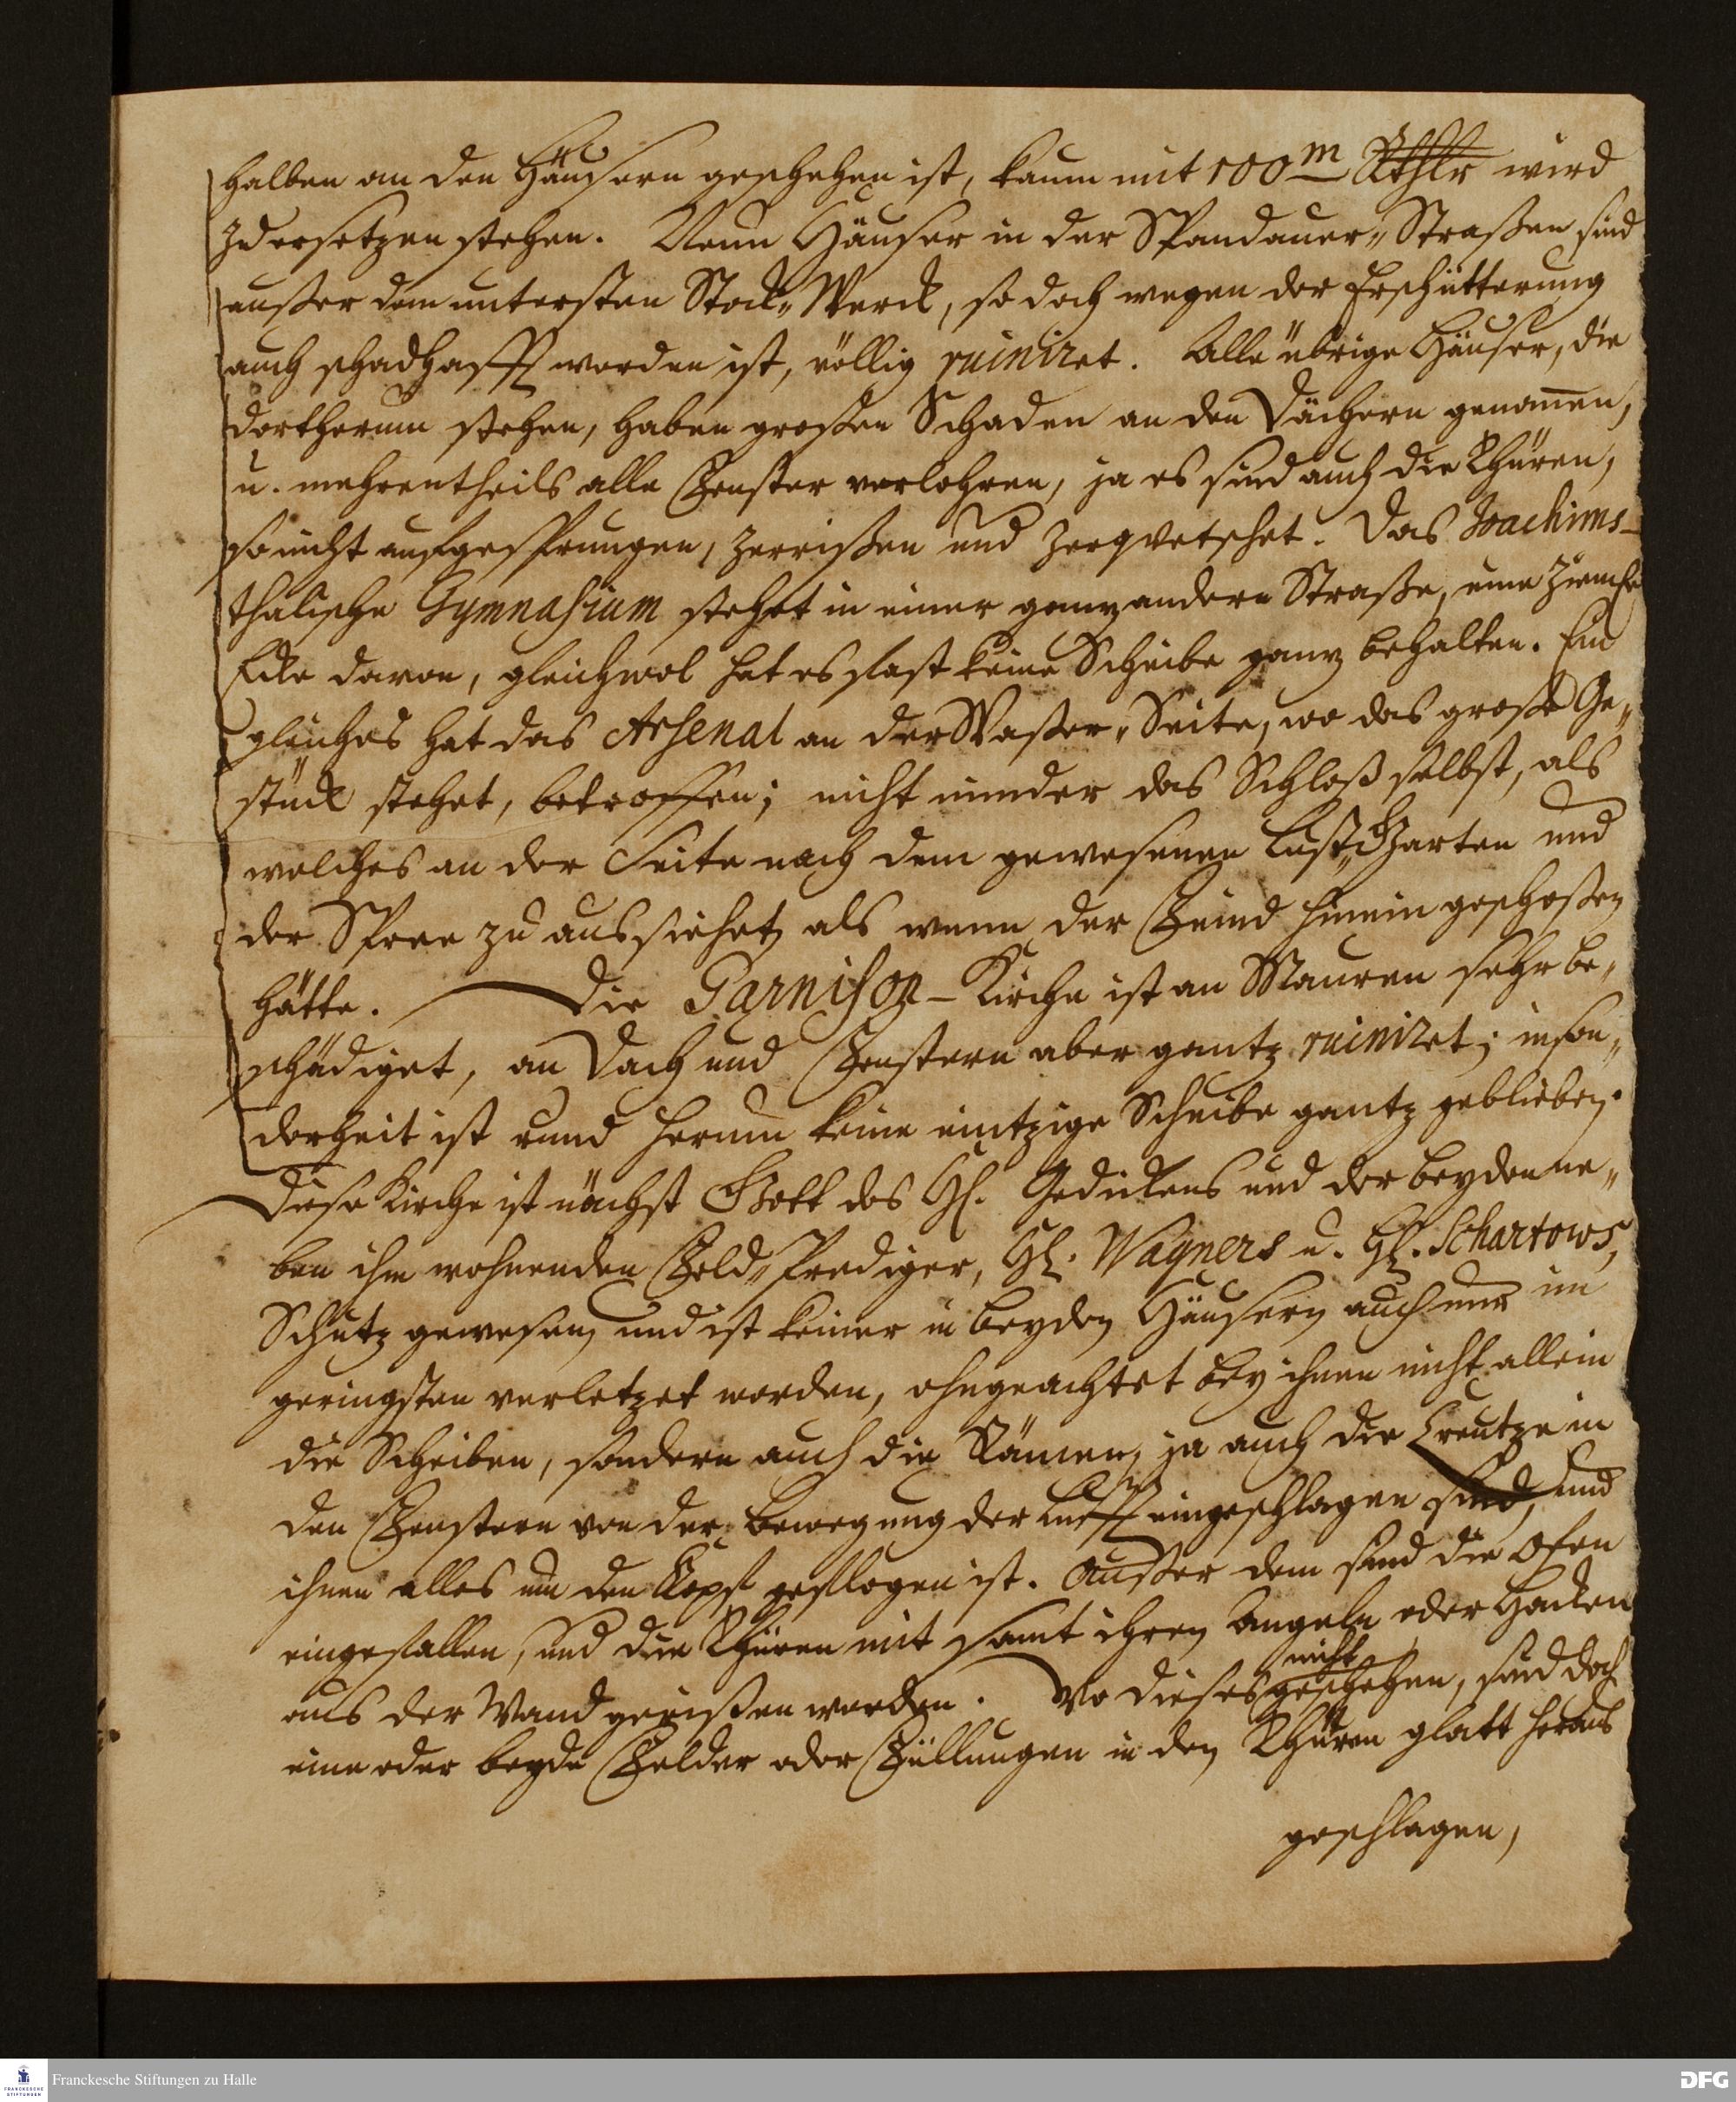 halben an den Häusern geschehen ist, kaum mit 100m Rthlr wird
zu ersetzen stehen. Neun Häuser in der Spandauer„Straßen sind
außer dem untersten Stock„Werck, so doch wegen der Erschütterung
auch schadhafft worden ist, völlig ruiniret. Alle übrige Häuser, die
dortherum stehen, haben großen Schaden an den Dächern genom̅en,
u. mehrentheils alle Fenster verlohren, ja es sind auch die Thüren,
so nicht aufgesprungen, zerrißen und zerqvetschet. Das Joachims-
thalische Gymnasium stehet in einer ganz andern Straße, eine ziemliche
Ecke davon, gleichwol hat es fast keine Scheibe ganz behalten. Ein
gleiches hat das Arsenal an der Waßer„Seite, wo das große Ge„
stück stehet, betroffen; nicht minder das Schloß selbst, als
welches an der Seite nach dem gewesenen Lust„Garten und
der Spree zu aussiehet, als wenn der Feind hinein geschoßen
hätte. Die Garnison-Kirche ist an Mauren sehr be„
schädiget, an Dach und Fenstern aber gantz ruiniret; inson„
derheit ist rund herum keine eintzige Scheibe gantz geblieben.
Diese Kirche ist nächst Gott des H. Gedickens und der beyden ne„
ben ihm wohnenden Feld„Prediger, H. Wagners u. H. Schartows,
Schutz gewesen, und ist keiner in beyden Häusern auch nur im
geringsten verletzet worden, ohngeachtet bey ihnen nicht allein
die Scheiben, sondern auch die Rämen, ja auch die Creutze in
den Fenstern von der Bewegung der Lufft eingeschlagen sind, und
ihnen alles um den Kopf geflogen ist. Außer dem sind die Ofen
eingefallen, und die Thüren mit samt ihren Angeln oder Hacken
aus der Wand gerißen worden. Wo dieses nicht geschehen, sind doch
eine oder beyde Felder oder Füllungen in den Thüren glatt heraus
geschlagen,
Franckesche Stiftungen zu Halle
FRANCKESCHE
STIFTUNGEN
DFG